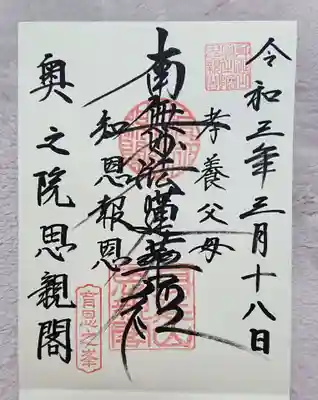 令和三年三月十八日
孝養父母
南無妙法蓮華経
知恩報恩
奥之院思親閣
育恩之峯